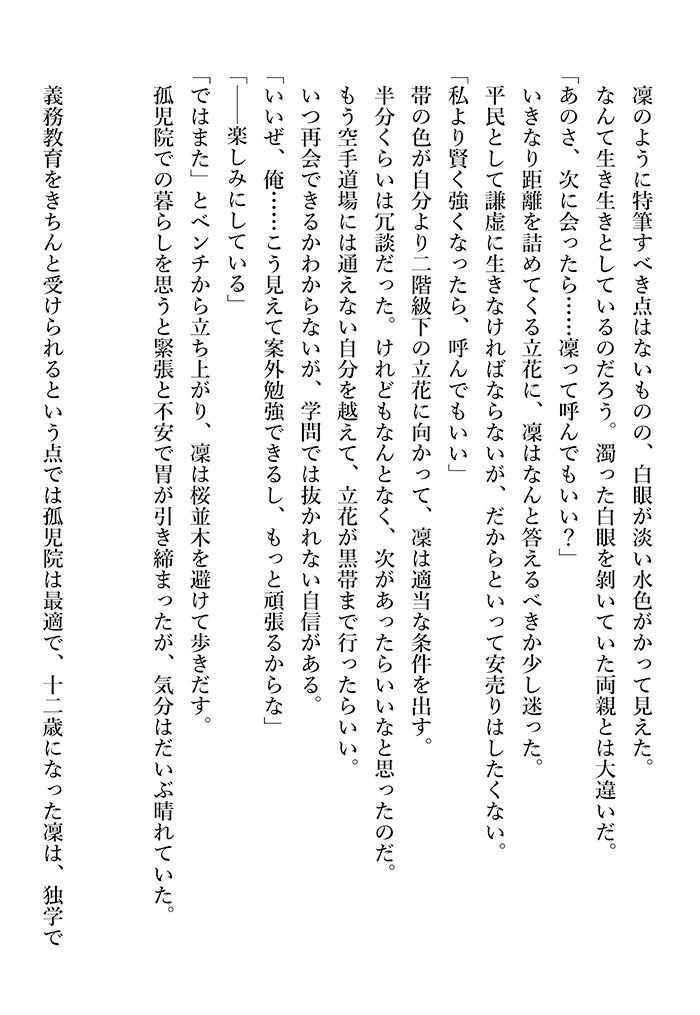 凛のように特筆すべき点はないものの、白眼が淡い水色がかって見えた。
なんて生き生きとしているのだろう。濁った白眼を剝いていた両親とは大違いだ。
「あのさ、次に会ったら……凛って呼んでもいい？」
いきなり距離を詰めてくる立花に、凛はなんと答えるべきか少し迷った。
平民として謙虚に生きなければならないが、だからといって安売りはしたくない。
「私より賢く強くなったら、呼んでもいい」
帯の色が自分より二階級下の立花に向かって、凛は適当な条件を出す。
半分くらいは冗談だった。けれどもなんとなく、次があったらいいなと思ったのだ。
もう空手道場には通えない自分を越えて、立花が黒帯まで行ったらいい。
いつ再会できるかわからないが、学問では抜かれない自信がある。
「いいぜ、俺……こう見えて案外勉強できるし、もっと頑張るからな」
「――楽しみにしている」
「ではまた」とベンチから立ち上がり、凛は桜並木を避けて歩きだす。
孤児院での暮らしを思うと緊張と不安で胃が引き締まったが、気分はだいぶ晴れていた。
義務教育をきちんと受けられるという点では孤児院は最適で、十二歳になった凛は、独学で